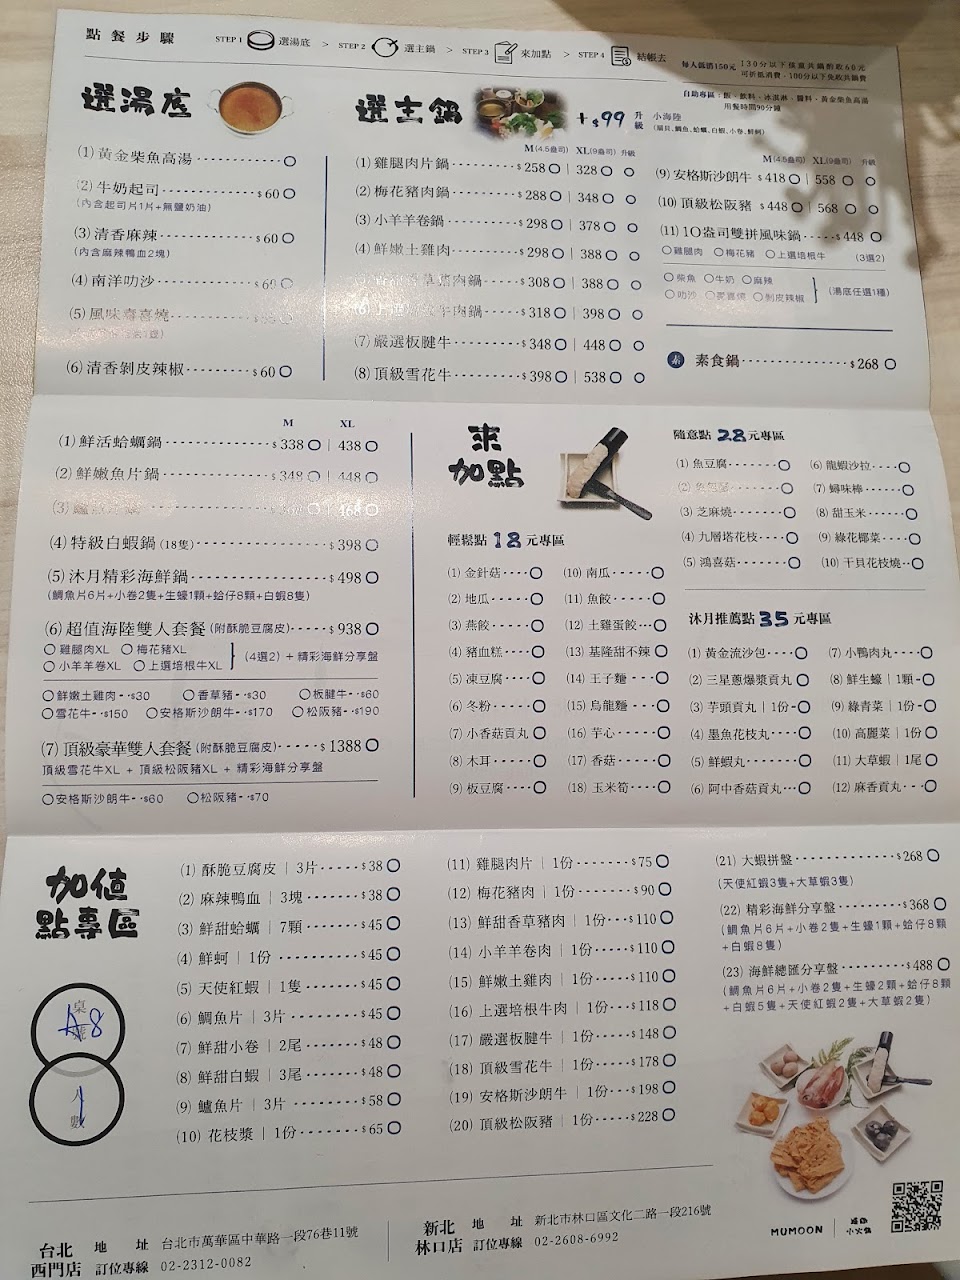 點餐步驟
STEP 1 選湯底 > STEP 2 選主鍋 > STEP 3 來加點 > STEP 4 結帳去
每人低消150元
自助專區：飯、飲料、冰淇淋、醬料、黃金柴魚高湯
用餐時間90分鐘
選湯底
(1) 黃金柴魚高湯
(2) 牛奶起司 $60
(內含起司片1片+無鹽奶油)
(3) 清香麻辣 $60
(內含麻辣鴨血2塊)
(4) 南洋叻沙 $60
(5) 風味壽喜燒
(6) 清香剝皮辣椒 $60
選主鍋
+$99 升級 小海陸
(扇貝、鯛魚、蛤蠣、白蝦、小卷、鮮蚵)
M(4.5盎司) XL(9盎司) 升級
(1) 雞腿肉片鍋 $258 | 328
(2) 梅花豬肉鍋 $288 | 348
(3) 小羊羊卷鍋 $298 | 378
(4) 鮮嫩土雞肉 $298 | 388
$308 | 388
牛肉鍋 $318 | 398
(7) 嚴選板腱牛 $348 | 448
(8) 頂級雪花牛 $398 | 538
M(4.5盎司) XL(9盎司) 升級
(9) 安格斯沙朗牛 $418 | 558
(10) 頂級松阪豬 $448 | 568
(11) 10盎司雙拼風味鍋 $448
雞腿肉 梅花豬 上選培根牛 (3選2)
柴魚 牛奶 麻辣
叻沙 壽喜燒 剝皮辣椒
(湯底任選1種)
素 素食鍋 $268
M XL
(1) 鮮活蛤蠣鍋 $338 | 438
(2) 鮮嫩魚片鍋 $348 | 448
(3) 468
(4) 特級白蝦鍋 (18隻) $398
(5) 沐月精彩海鮮鍋 $498
(鯛魚片6片+小卷2隻+生蠔1顆+蛤仔8顆+白蝦8隻)
(6) 超值海陸雙人套餐 (附酥脆豆腐皮) $938
雞腿肉XL 梅花豬XL
小羊羊卷XL 上選培根牛XL
(4選2) + 精彩海鮮分享盤
鮮嫩土雞肉 $30 香草豬 $30 板腱牛 $60
雪花牛 $150 安格斯沙朗牛 $170 松阪豬 $190
(7) 頂級豪華雙人套餐 (附酥脆豆腐皮) $1388
頂級雪花牛XL + 頂級松阪豬XL + 精彩海鮮分享盤
安格斯沙朗牛 $60 松阪豬 $70
來加點
輕鬆點 18 元專區
(1) 金針菇
(2) 地瓜
(3) 燕餃
(4) 豬血糕
(5) 凍豆腐
(6) 冬粉
(7) 小香菇貢丸
(8) 木耳
(9) 板豆腐
(10) 南瓜
(11) 魚餃
(12) 土雞蛋餃
(13) 基隆甜不辣
(14) 王子麵
(15) 烏龍麵
(16) 芋心
(17) 香菇
(18) 玉米筍
隨意點 28 元專區
(1) 魚豆腐
(3) 芝麻燒
(4) 九層塔花枝
(5) 鴻喜菇
(6) 龍蝦沙拉
(7) 蟳味棒
(8) 甜玉米
(9) 綠花椰菜
(10) 干貝花枝燒
沐月推薦點 35 元專區
(1) 黃金流沙包
(2) 三星蔥爆漿貢丸
(3) 芋頭貢丸 | 1份
(4) 墨魚花枝丸
(5) 鮮蝦丸
(6) 阿中香菇貢丸
(7) 小鴨肉丸
(8) 鮮生蠔 | 1顆
(9) 綠青菜 | 1份
(10) 高麗菜 | 1份
(11) 大草蝦 | 1尾
(12) 麻香貢丸
加值點專區
桌號 A8
人數 1
(1) 酥脆豆腐皮 | 3片 $38
(2) 麻辣鴨血 | 3塊 $38
(3) 鮮甜蛤蠣 | 7顆 $45
(4) 鮮蚵 | 1份 $45
(5) 天使紅蝦 | 1隻 $45
(6) 鯛魚片 | 3片 $45
(7) 鮮甜小卷 | 2尾 $48
(8) 鮮甜白蝦 | 3尾 $48
(9) 鱸魚片 | 3片 $58
(10) 花枝漿 | 1份 $65
(11) 雞腿肉片 | 1份 $75
(12) 梅花豬肉 | 1份 $90
(13) 鮮甜香草豬肉 | 1份 $110
(14) 小羊羊卷肉 | 1份 $110
(15) 鮮嫩土雞肉 | 1份 $110
(16) 上選培根牛肉 | 1份 $118
(17) 嚴選板腱牛 | 1份 $148
(18) 頂級雪花牛 | 1份 $178
(19) 安格斯沙朗牛 | 1份 $198
(20) 頂級松阪豬 | 1份 $228
(21) 大蝦拼盤 $268
(天使紅蝦3隻+大草蝦3隻)
(22) 精彩海鮮分享盤 $368
(鯛魚片6片+小卷2隻+生蠔1顆+蛤仔8顆
+白蝦8隻)
(23) 海鮮總匯分享盤 $488
(鯛魚片6片+小卷2隻+生蠔2顆+蛤仔8顆
+白蝦5隻+天使紅蝦2隻+大草蝦2隻)
台北西門店
地址 台北市萬華區中華路一段76巷11號
訂位專線 02-2312-0082
新北林口店
地址 新北市林口區文化二路一段216號
訂位專線 02-2608-6992
MUMOON
小火鍋